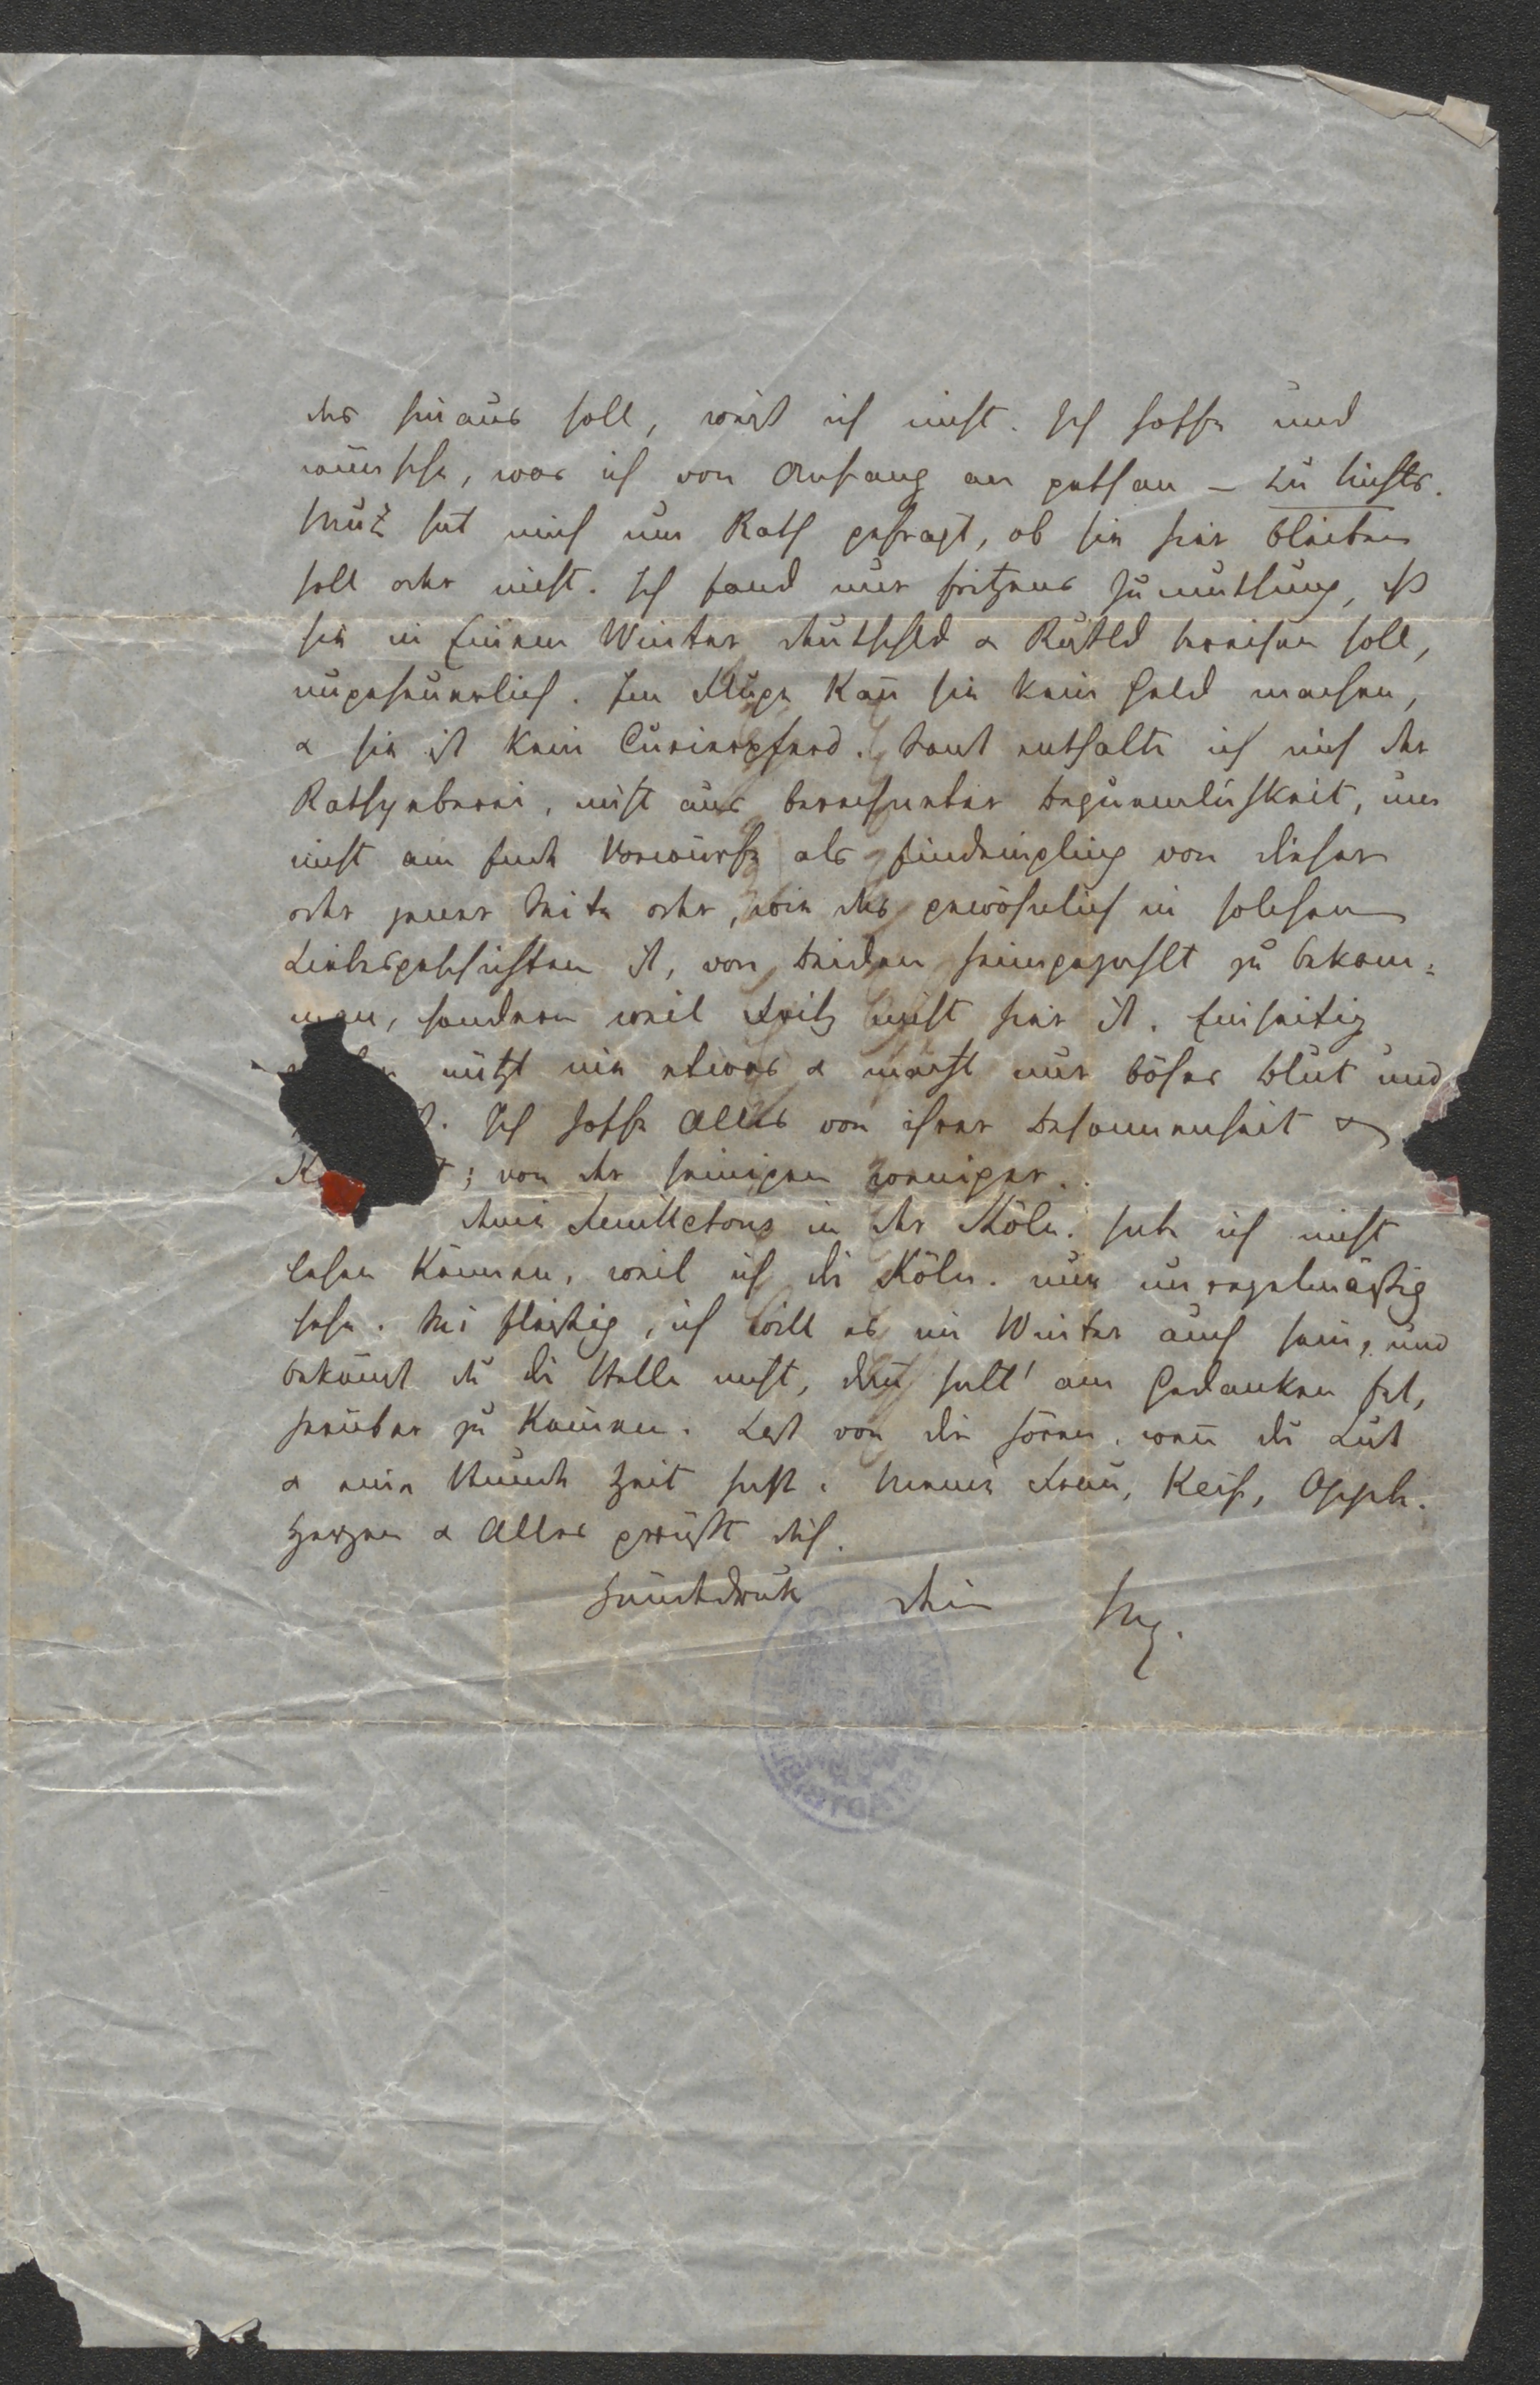 das hinaus soll, weiß ich nicht. Ich hoffe und
wünsche, was ich von Anfang an gethan – zu Nichts.
hat mich um Rath gefragt, ob sie hier bleiben
soll oder nicht. Ich fand nur Fritzens Zumuthung, daß
sie in Einem Winter Deutschld & Rußld bereisen soll,
ungeheuerlich. Im Fluge kañ sie kein Geld machen,
& sie ist kein Curierpferd. Sonst enthalte ich mich der
Rathgeberei, nicht aus berechneter Bequemlichkeit, um
nicht am Ende Vorwürfe als Eindringling von dieser
oder jener Seite oder, wie das gewöhnlich in solchen
Liebesgeschichten ist, von Beiden heimgezahlt zu bekom-
men, sondern weil Fritz nicht hier ist. Einseitig
nützt nie etwas & macht nur böses Blut und
Ich hoffe Alles von ihrer Besonnenheit &
; von der seinigen weniger.
Deine Feuilletons in der Köln. habe ich nicht
lesen können, weil ich die Köln. nur unregelmäßig
sehe. Sei fleißig, ich will es im Winter auch sein, und
bekom̃st du die Stelle nicht, dañ halt' am Gedanken fest,
herüber zu kommen. Laß von dir hören, weñ du Lust
& eine Stunde Zeit hast. Meine Frau, Reich, Opph.
Herzen & Alles grüßt dich.
Händedruck Dein Hg.